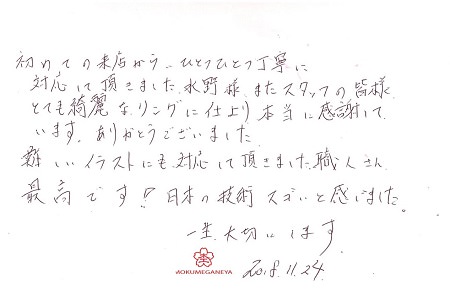 初めての来店から、ひとつひとつ丁寧に
対応して頂きました水野様、またスタッフの皆様
とても綺麗なリングに仕上り本当に感謝して
います。ありがとうございました
難しいイラストにも対応して頂きました職人さん
最高です！日本の技術スゴいと感じました。
一生大切にします
MOKUMEGANEYA
2018.11.24